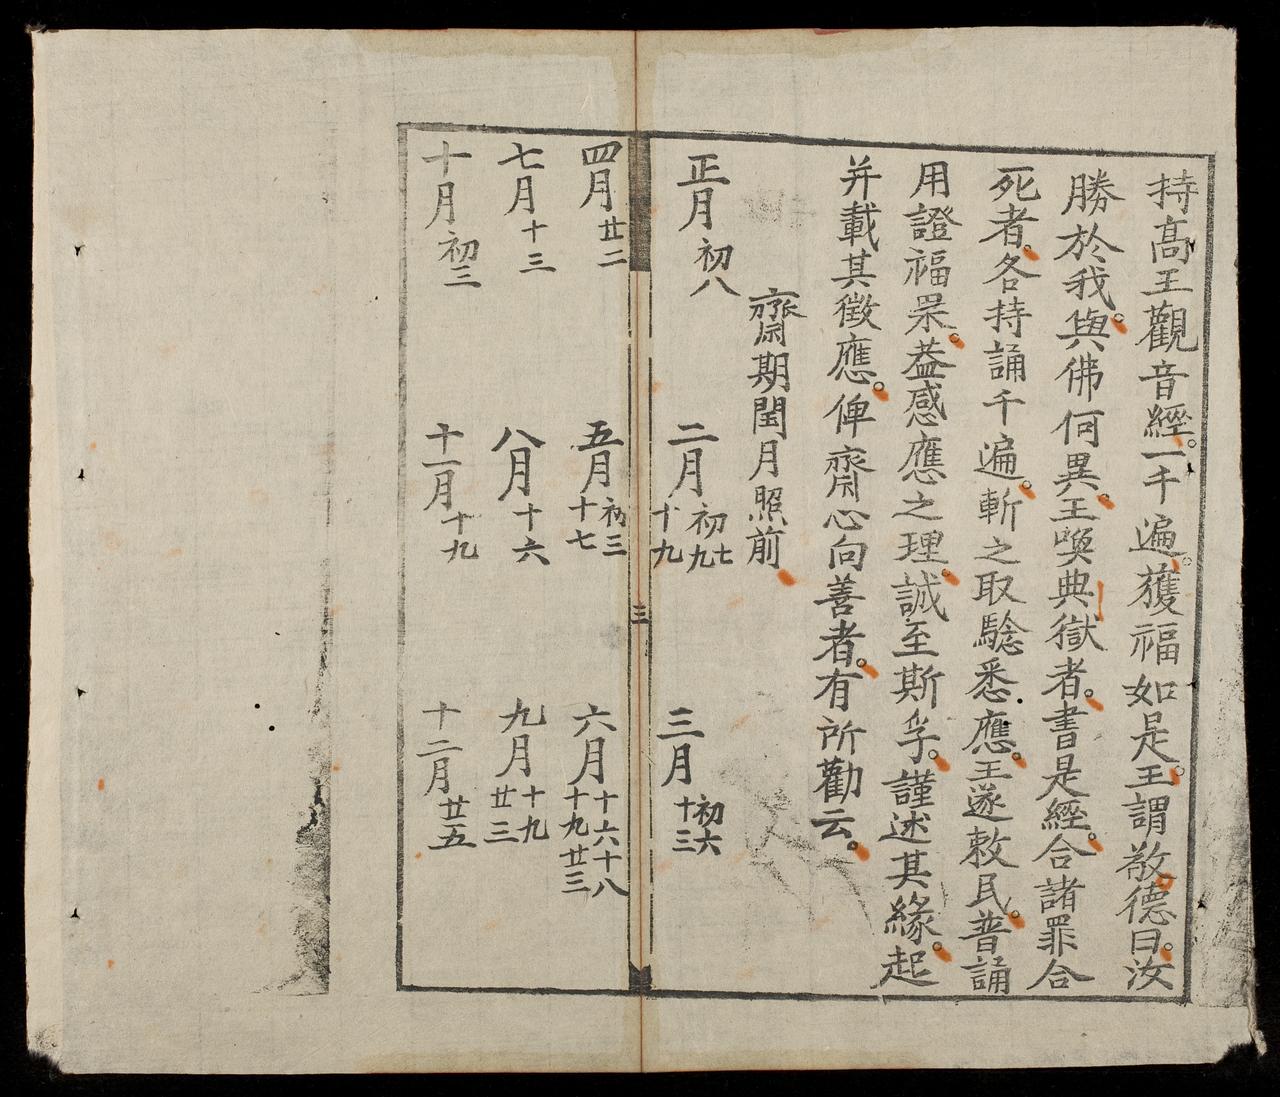 持高王觀音經。一千遍。獲福如是。王謂敬德曰。汝
勝於我。與佛何異。王喚典獄者。書是經。合諸罪合
死者。各持誦千遍。斬之取騐悉應。王遂敕民。普誦
用證福果。葢感應之理。誠至斯孚。謹述其緣。起
并載其徵應。俾齋心向善者。有所勸云。
齋期閏月照前
正月 初八
二月 初七 初九 十九
三月 初六 十三
三
四月 廿二
五月 初三 十七
六月 十六 十八 十九 廿三
七月 十三
八月 十六
九月 十九 廿三
十月 初三
十一月 十九
十二月 廿五